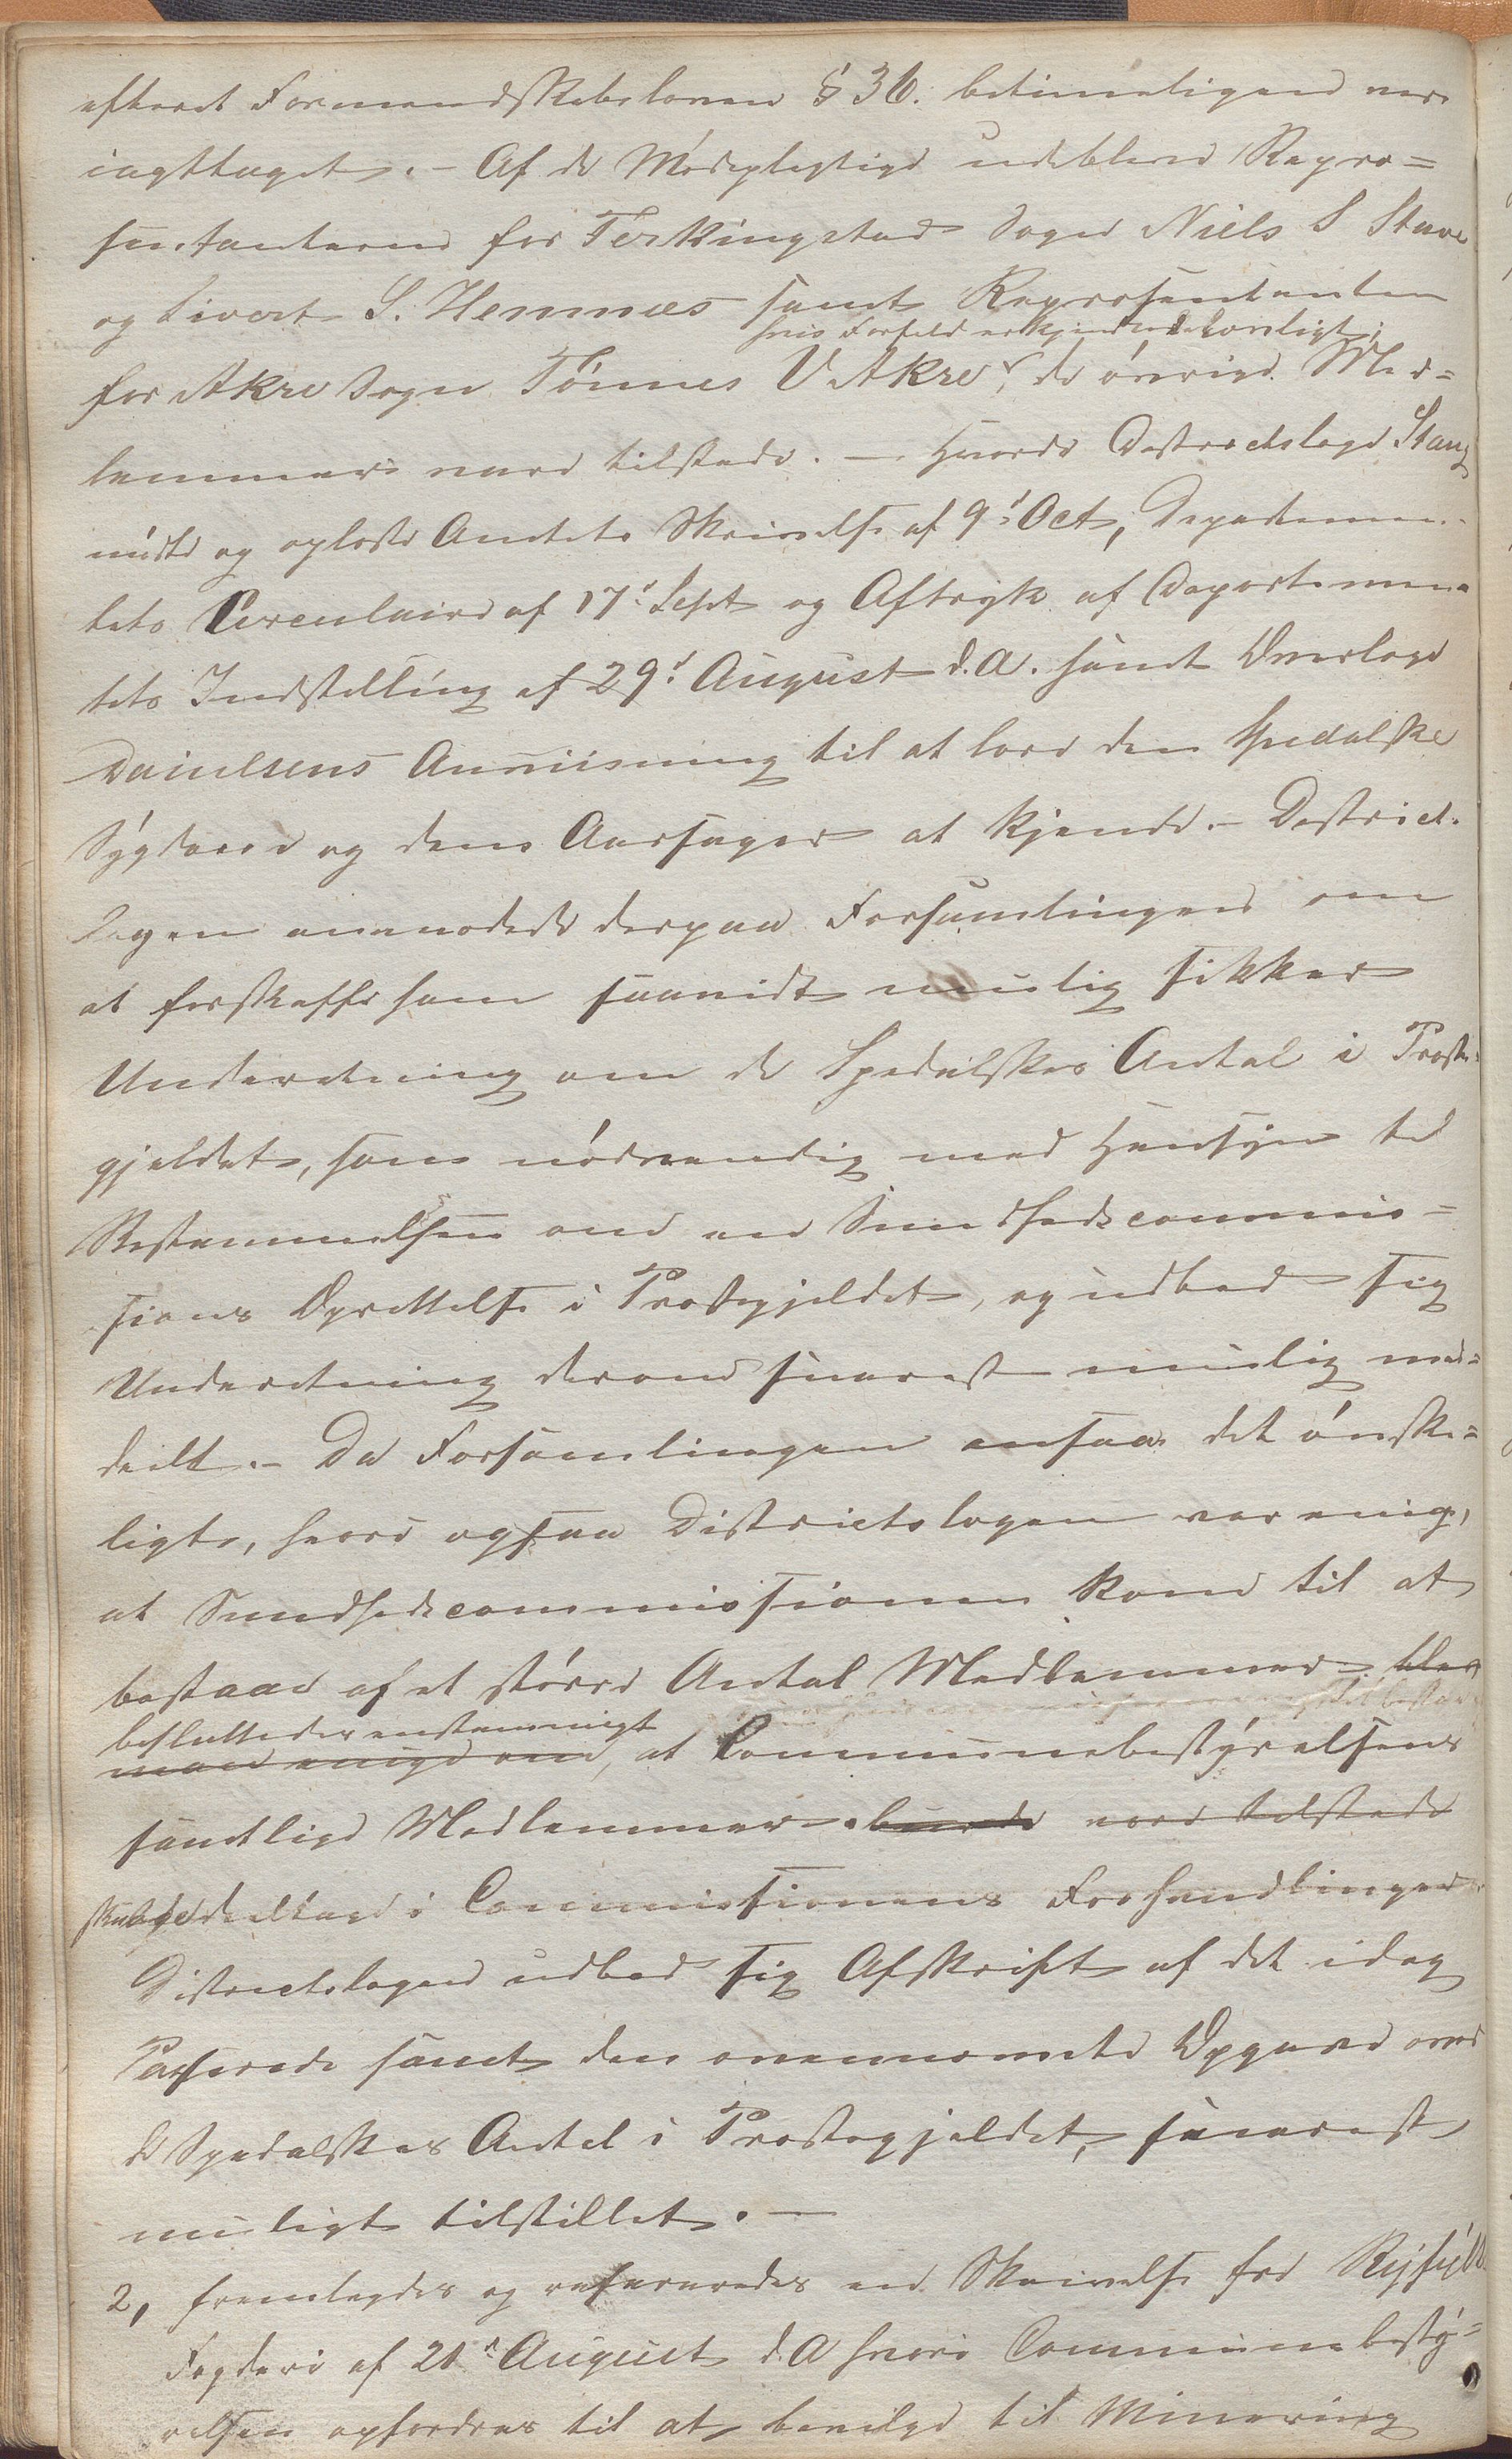 efteret Formandskabsloven § 36. betimeligen var
iagttaget. - Af de Mødepligtige udebleve Repræ=
sentanterne for Ferkingstad Sogn Niels S Stave
og Sivert S. Hemnæs samt Repræsentanten
hvis Forfald erkjendtes lovligt;
for Akre Sogn Tønnes V Akre, de øvrige Med=
lemmer vare tilstede. - Hvorda Destrictslæge Stang
mødte og oplæste Amtets Skrivelse af 9d Oct, Departemen-
tets Circulaire af 17d Sept og Aftryk af Departemen-
tets Indstilling af 29d August d.A. samt Overlæge
Danielsens Anviisning til at lære den Spedalske
Sygdom og dens Aarsager at kjende. - District-
lægen anmodede derpaa Forsamlingen om
at forskaffe ham saavidt muelig sikker
Underretning om de Spedalskes Antal i Præste-
gjeldet, som nødvendig med Hensyn til
Bestemmelsen om en Sundhedscommis=
sions Oprettelse i Præstegjeldet, og udbad sig
Underretning derom snarest muelig med=
deelt. - Da Forsamlingen ansaae det ønske=
ligt, hvori ogsaa Districtslægen var enig,
at Sundhedscommissionen kom til at
bestaae af et større Antal Medlemmer blev
besluttedes enstemmigt
man enige om, at Communebestyrelsens
samtlige Medlemmer burde være tilstede
skulde deeltage i Commissionens Forhandlinger.
Districtslægen udbad sig Afskrift af det idag
Passerede samt den ovennævnte Opgave over
de Spedalskes Antal i Præstegjeldet, snarest
mueligt tilstillet. -
2, fremlagdes og refereredes en Skrivelse fra Ryfylke
Fogderi af 21d August d.A hvori Communebesty=
relsen opfordres til at bevilge til Minering